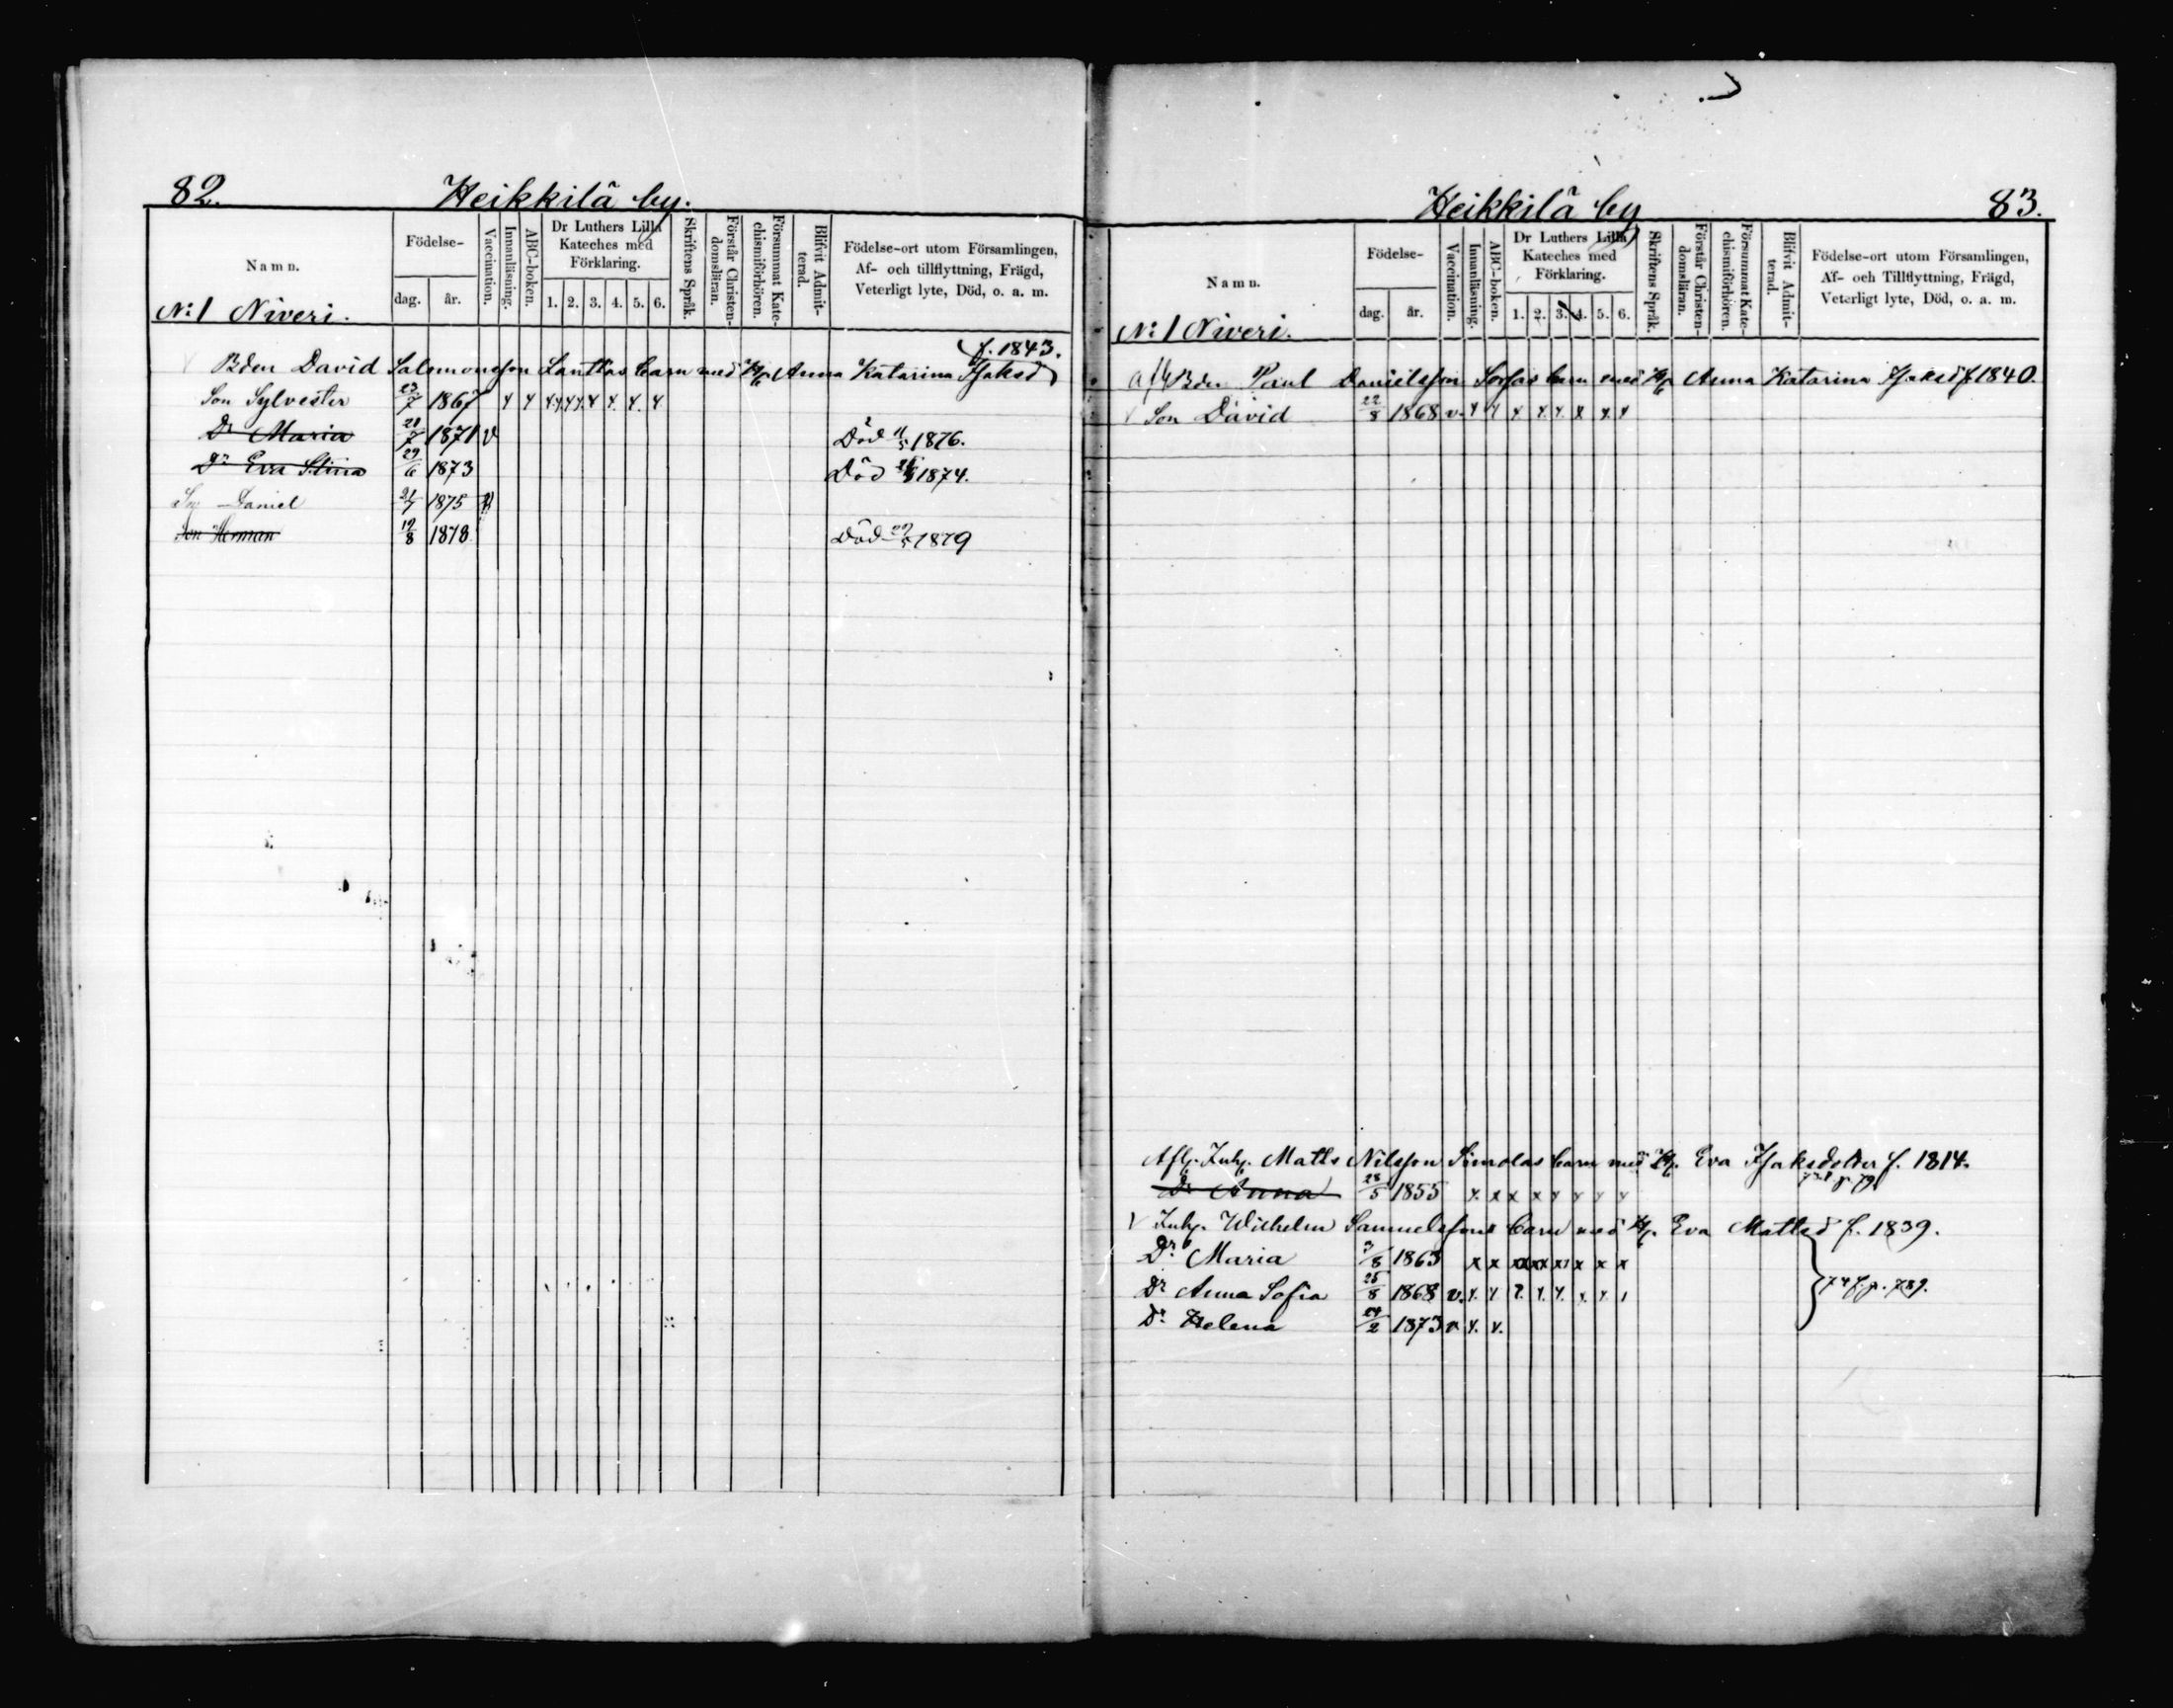 82. Heikkilä by.
Namn. Födelse- dag. år. Vaccination. Innanläsning. ABC-boken. Dr Luthers Lilla Kateches med Förklaring. 1. 2. 3. 4. 5. 6. Skriftens Språk. Förstår Christen-domsläran. Försummat Kate-chismiförhören. Blifvit Admit-terad. Födelse-ort utom Församlingen, Af- och tillflyttning, Frägd, Veterligt lyte, Död, o. a. m.
N:1 Niveri.
f. 1843.
Bden David Salomonsson Lanttos barn med H. Anna Katarina Isaksd
Son Sylvester 23/7 1867
Dr Maria 21/7 1871 v Död 11/5 1876.
Dr Eva Stina 29/6 1873 Död 1874.
Son Daniel 21/7 1875
Son Herman 19/8 1878 Död 1879
Heikkilä by 83.
Namn. Födelse- dag. år. Vaccination. Innanläsning. ABC-boken. Dr Luthers Lilla Kateches med Förklaring. 1. 2. 3. 4. 5. 6. Skriftens Språk. Förstår Christen-domsläran. Försummat Kate-chismiförhören. Blifvit Admit-terad. Födelse-ort utom Församlingen, Af- och Tillflyttning, Frägd, Veterligt lyte, Död, o. a. m.
N:1 Niveri.
Bden Paul Danielsson barn med H. Anna Katarina Isaksd f. 1840.
v Son David 22/8 1868 v. x x x x. x. x x. x
Afl. Inh. Matts Nilsson Simolas barn med H. Eva Isaksdotter f. 1814.
Dr Anna 28/5 1855 x. x x x x x x x
V Inh. Wilhelm Samuelssons barn med H. Eva Mattsd f. 1839.
Dr Maria 3/8 1863 x x x x x x x x
Dr Anna Sofia 25/8 1868 v. x. x x. x. x. x. x.
Dr Helena 24/2 1873 v x. x.